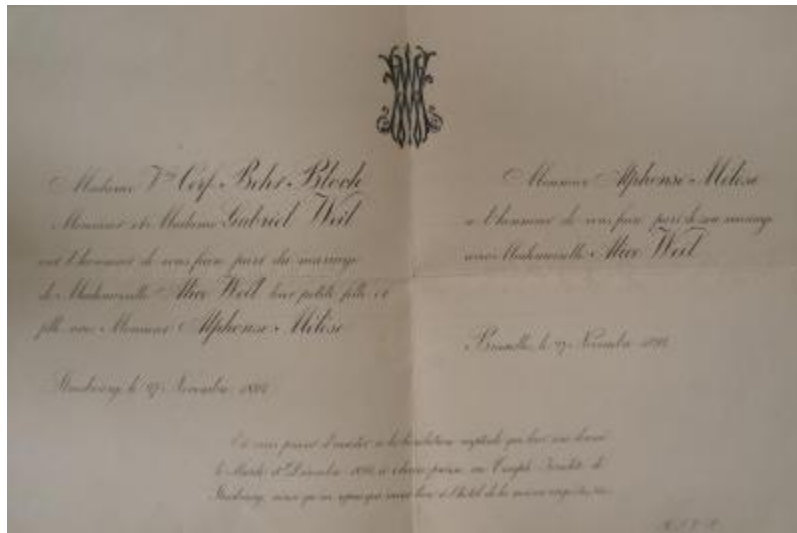 Madame Vve Cerf-Behr-Bloch
Monsieur et Madame Gabriel Weil
ont l'honneur de vous faire part du mariage
de Mademoiselle Alice Weil leur petite fille et
fille avec Monsieur Alphonse Mélèse
Strasbourg, le 27 Novembre
Monsieur Alphonse Mélèse
a l'honneur de vous faire part de son mariage
avec Mademoiselle Alice Weil
Bruxelles, le 27 Novembre
et vous prient d'assister à la bénédiction nuptiale qui leur sera donnée
le Mardi Décembre au Temple Israélite de
Strasbourg,